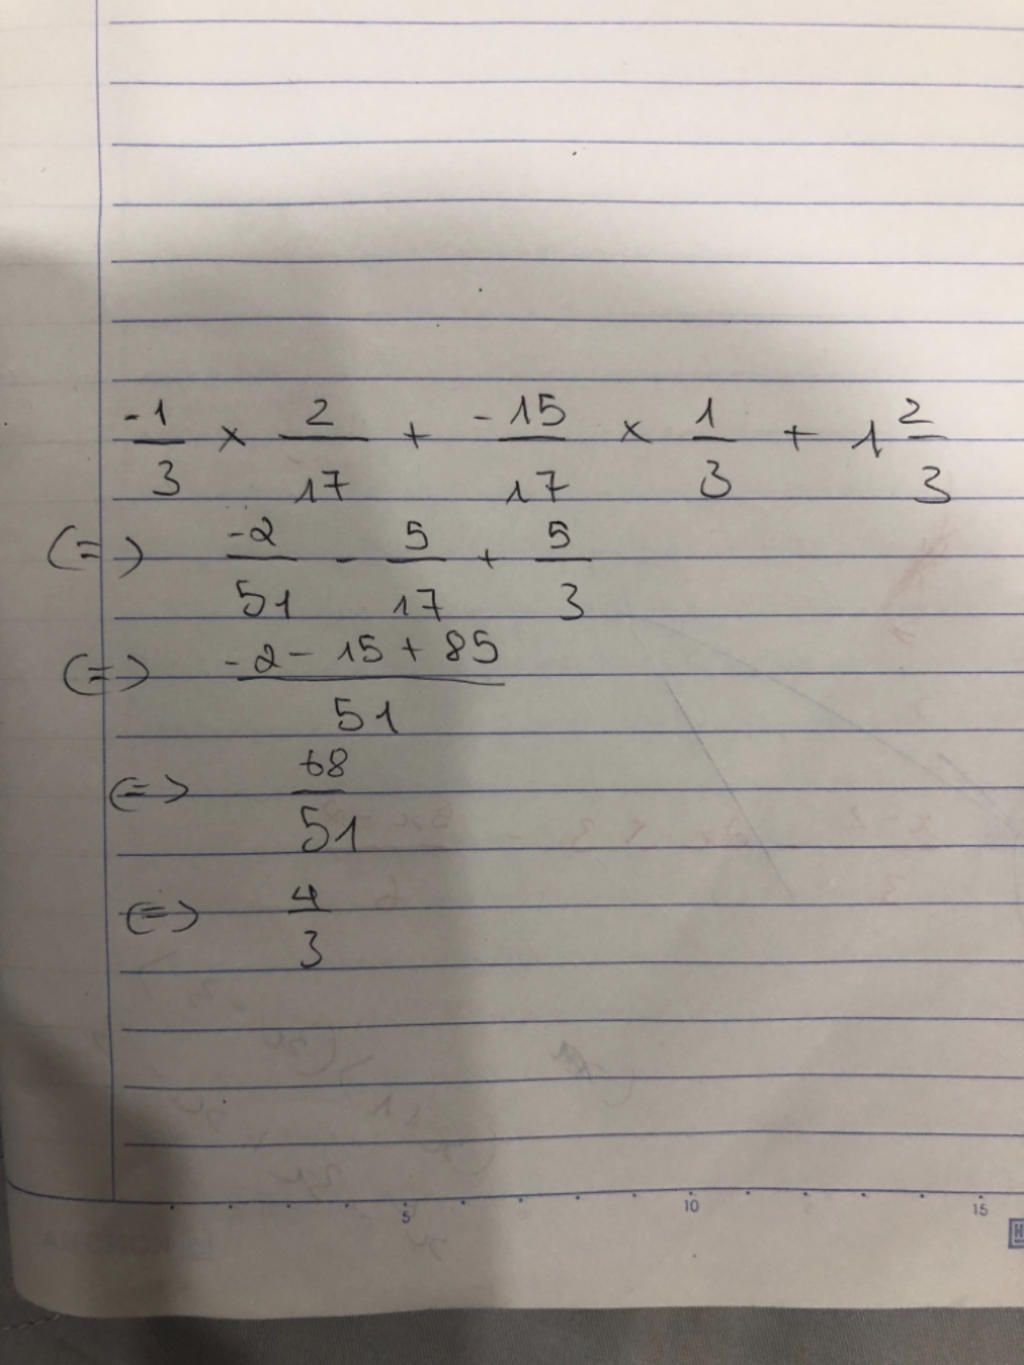 -1/3 × 2/17 + -15/17 × 1/3 + 1 2/3
(=) -2/51 - 5/17 + 5/3
(=) -2 - 15 + 85/51
(=) 68/51
(=) 4/3
5 10 15